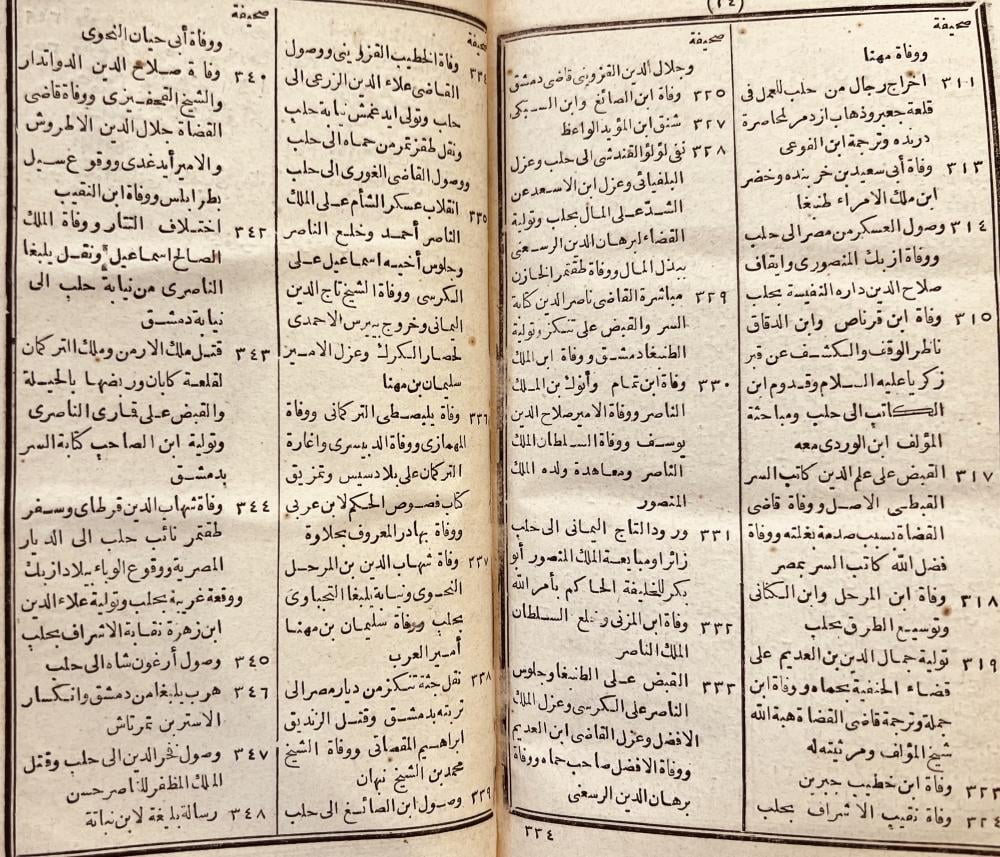 (٢٤)
صحيفة
ووفاة مهنا
٣١١ اخراج رجال من حلب للعمل فى
قلعة جعبر وذهاب ازدمر لمحاصرة
درنده وترجمة ابن الفوعى
٣١٣ وفاة أبى سعيد بن خربنده وخضر
ابن ملك الامراء طنبغا
٣١٤ وصول العسكر من مصر الى حلب
ووفاة ازبك المنصورى وايقاف
صلاح الدين داره النفيسة بحلب
٣١٥ وفاة ابن قرناص وابن الدقاق
ناظر الوقف والكشف عن قبر
زكريا عليه السلام وقدوم ابن
الكاتب الى حلب ومباحثة
المؤلف ابن الوردى معه
٣١٧ القبض على علم الدين كاتب السر
القبطى الاصل ووفاة قاضى
القضاة بسبب صدمة بغلته ووفاة
فضل الله كاتب السر بمصر
٣١٨ وفاة ابن المرحل وابن الكنانى
وتوسيع الطرق بحلب
٣١٩ تولية جمال الدين بن العديم على
قضاء الحنفية بحماه ووفاة ابن
جملة وترجمة قاضى القضاة هبة الله
شيخ المؤلف ومرثيته له
٣٢٣ وفاة ابن خطيب جبرين
٣٢٤ وفاة نقيب الاشراف بحلب
صحيفة
وجلال الدين القزوينى قاضى دمشق
٣٢٥ وفاة ابن الصائغ وابن السبكى
٣٢٧ شنق ابن المؤيد الواعظ
٣٢٨ نفى لؤلؤ القندشى الى حلب وعزل
البلفيائى وعزل ابن الاسعد عن
الشد على المال بحلب وتولية
القضاء لبرهان الدين الرسعنى
ببذل المال ووفاة طقتمر الخازن
٣٢٩ مباشرة القاضى ناصر الدين كتابة
السر والقبض على تنكز وتولية
الطنبغا دمشق ووفاة ابن الملك
٣٣٠ وفاة ابن تمام وأنوك بن الملك
الناصر ووفاة الامير صلاح الدين
يوسف ووفاة السلطان الملك
الناصر ومعاهدة ولده الملك
المنصور
٣٣١ ورود التاج اليمانى الى حلب
زائرا ومبايعة الملك المنصور أبو
بكر للخليفة الحاكم بأمر الله
٣٣٢ وفاة ابن المزنى وخلع السلطان
الملك الناصر
٣٣٣ القبض على الطنبغا وجلوس
الناصر على الكرسى وعزل الملك
الافضل وعزل القاضى ابن العديم
ووفاة الافضل صاحب حماه ووفاة
برهان الدين الرسعنى
٣٣٤
صحيفة
٣٣٤ وفاة الخطيب القزوينى ووصول
القاضى علاء الدين الزرعى الى
حلب وتولى ايدغمش نيابة حلب
ونقل طقزتمر من حماه الى حلب
ووصول القاضى الغورى الى حلب
٣٣٥ انقلاب عسكر الشأم على الملك
الناصر أحمد وخلع الناصر
وجلوس أخيه اسماعيل على
الكرسى ووفاة الشيخ تاج الدين
اليمانى وخروج بيبرس الاحمدى
لحصار الكرك وعزل الامير
سليمان بن مهنا
٣٣٦ وفاة يليصطى التركمانى ووفاة
المهمازى ووفاة الدبيسرى واغارة
التركمان على بلاد سيس وتمزيق
كتاب فصوص الحكم لابن عربى
ووفاة بهادر المعروف بحلاوة
٣٣٧ وفاة شهاب الدين بن المرحل
النحوى ونيابة يلبغا التحياوى
بحلب ووفاة سليمان بن مهنا
أمير العرب
٣٣٨ نقل جثة تنكز من ديار مصر الى
تربته بدمشق وقتل الزنديق
ابراهيم المقصاتى ووفاة الشيخ
محمد بن الشيخ نبهان
٣٣٩ وصول ابن الصائغ الى حلب
صحيفة
ووفاة أبى حيان النحوى
٣٤٠ وفاة صلاح الدين الدواتدار
والشيخ القحفيزى ووفاة قاضى
القضاة جلال الدين الاطروش
والامير أيدغدى ووقوع سيل
بطرابلس ووفاة ابن النقيب
٣٤٢ اختلاف التتار ووفاة الملك
الصالح اسماعيل ونقل يلبغا
الناصرى من نيابة حلب الى
نيابة دمشق
٣٤٣ قتل ملك الارمن وملك التركمان
لقلعة كابان وربضها بالحيلة
والقبض على قمارى الناصرى
وتولية ابن الصاحب كتابة السر
بدمشق
٣٤٤ وفاة شهاب الدين قرطاى وسفر
طقتمر نائب حلب الى الديار
المصرية ووقوع الوباء ببلاد ازبك
ووقعة غريبة بحلب وتولية علاء الدين
ابن زهرة نقابة الاشراف بحلب
٣٤٥ وصول أرغون شاه الى حلب
٣٤٦ هرب يلبغا من دمشق وانكسار
الاستر بن تمرتاش
٣٤٧ وصول فخر الدين الى حلب وقتل
الملك المظفر للناصر حسن
٣٤٨ رسالة بليغة لابن نباتة